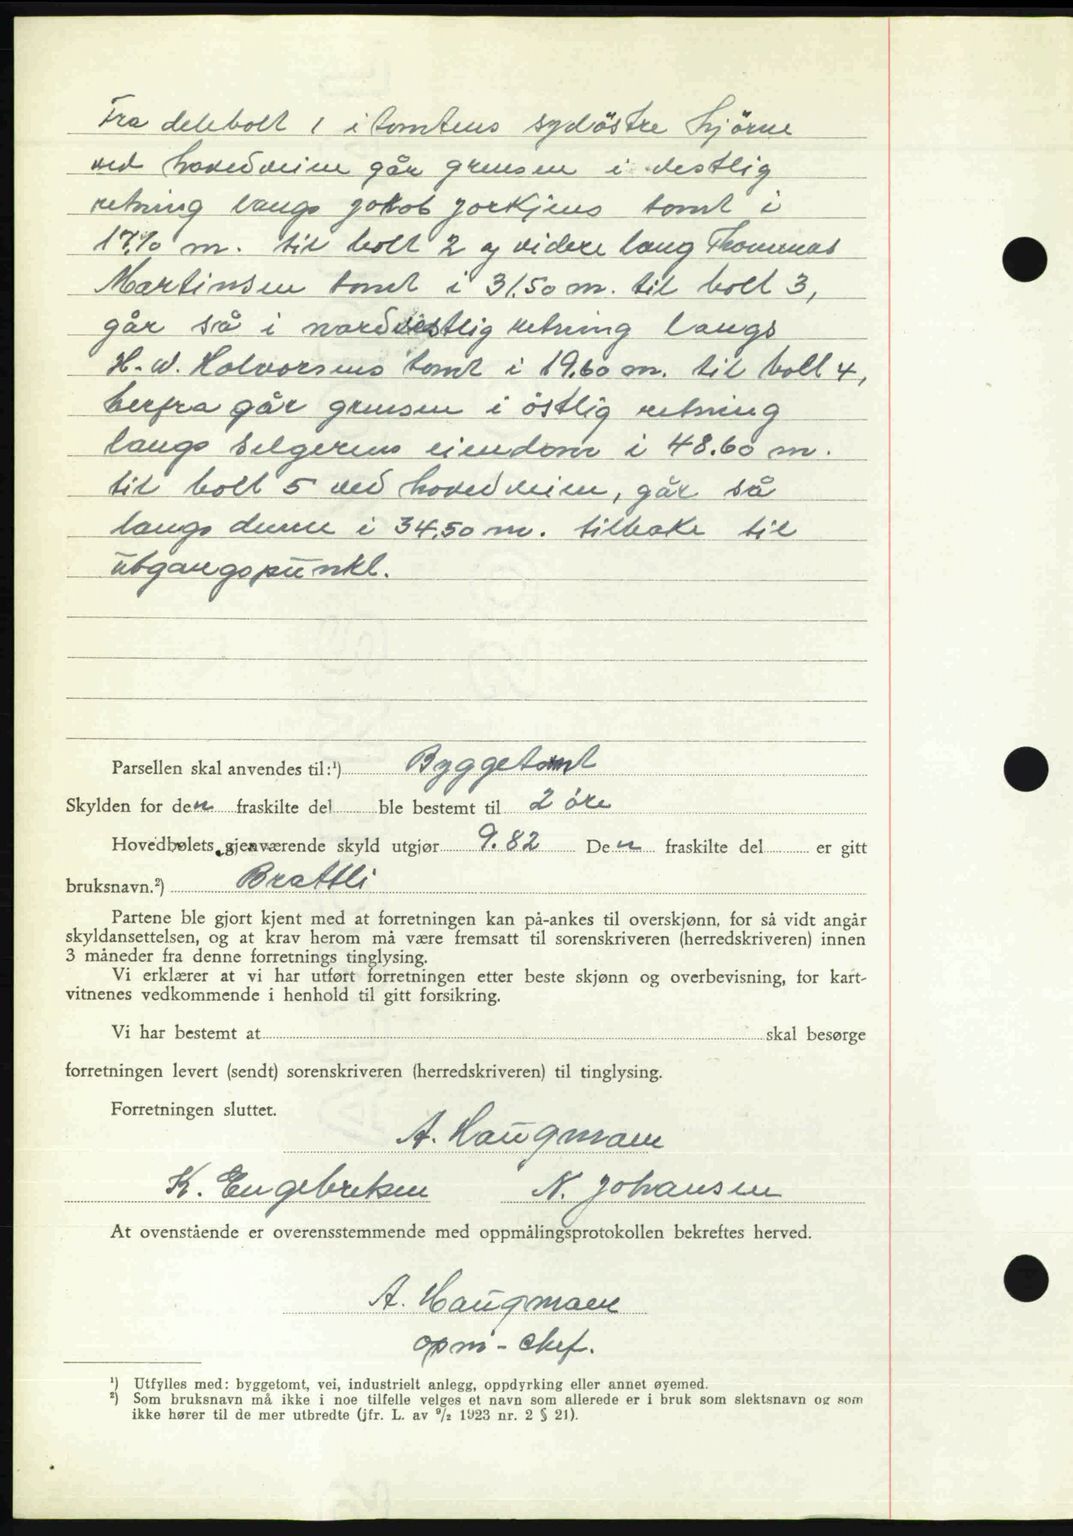 Fra delebolt 1 i tomtens sydöstre hjörne
ved hovedveien går grensen i vestlig
retning langs Jakob Jorkjens tomt i
17.70 m. til bolt 2 og videre lang Thommas
Martinsen tomt i 31.50 m. til bolt 3,
går så i nordvestlig retning langs
H. W. Halvorsens tomt i 19.60 m. til bolt 4,
herfra går grensen i östlig retning
langs selgerens eiendom i 48.60 m.
til bolt 5 ved hovedveien, går så
langs denne i 34.50 m. tilbake til
utgangspunkt.
Parsellen skal anvendes til:¹) Byggetomt
Skylden for den fraskilte del ble bestemt til 2 öre
Hovedbølets gjenværende skyld utgjør 9.82 Den fraskilte del er gitt
bruksnavn.²) Brattli
Partene ble gjort kjent med at forretningen kan på-ankes til overskjønn, for så vidt angår
skyldansettelsen, og at krav herom må være fremsatt til sorenskriveren (herredskriveren) innen
3 måneder fra denne forretnings tinglysing.
Vi erklærer at vi har utført forretningen etter beste skjønn og overbevisning, for kart-
vitnenes vedkommende i henhold til gitt forsikring.
Vi har bestemt at skal besørge
forretningen levert (sendt) sorenskriveren (herredskriveren) til tinglysing.
Forretningen sluttet.
A. Haugmann
K. Engebretsen N. Johansen
At ovenstående er overensstemmende med oppmålingsprotokollen bekreftes herved.
A. Haugmann
opm-chef.
¹) Utfylles med: byggetomt, vei, industrielt anlegg, oppdyrking eller annet øyemed.
²) Som bruksnavn må ikke i noe tilfelle velges et navn som allerede er i bruk som slektsnavn og som
ikke hører til de mer utbredte (jfr. L. av 9/2 1923 nr. 2 § 21).